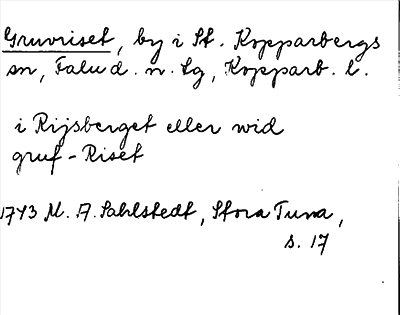 Gruvriset, by i St. Kopparbergs
sn, Falu d. n. lg, Kopparb. l.
i Rijsberget eller wid
gruf-Riset
1743 M. A. Sahlstedt, Stora Tuna,
s. 17